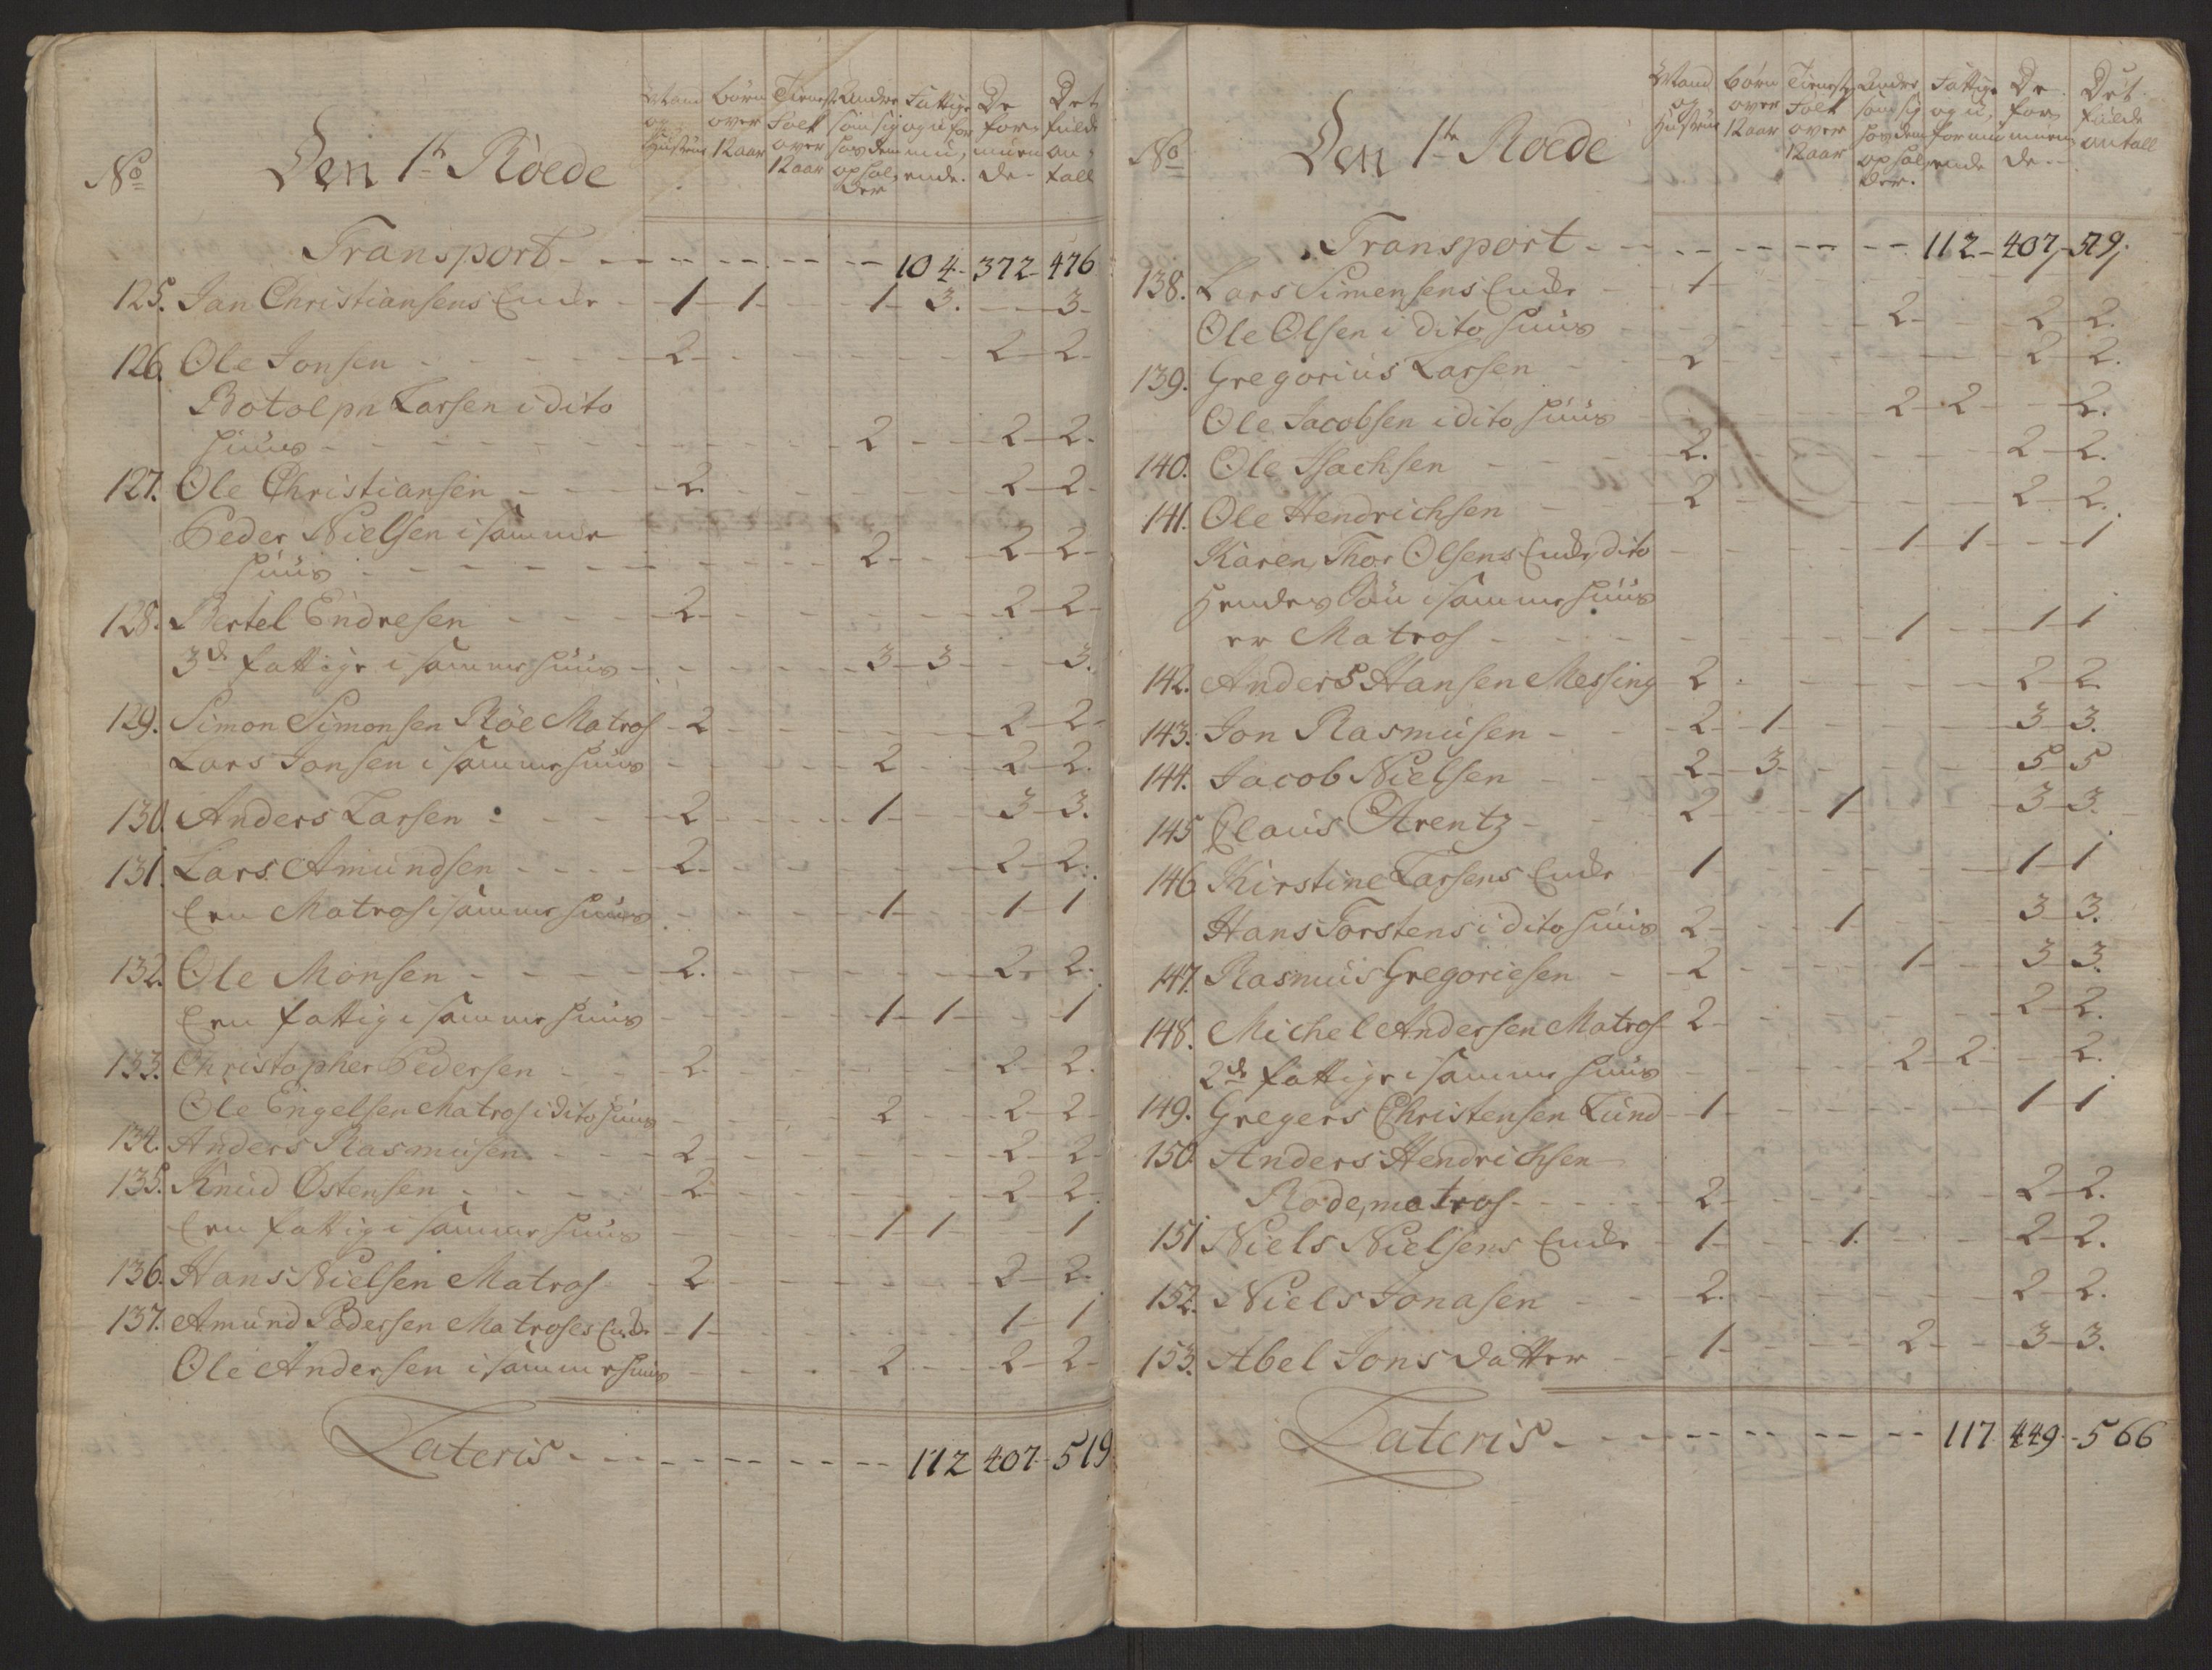 No
Den 1te Roede
Mand og Hustrue
børn over 12 aar
Tienest Folk over 12 aar
Andre som sig hos dem opholder
Fattige og ufor mu, ende.
De for, muen de-
Det fulde an, tall
Transport - - - - - - 104 - 372 - 476
125. Jan Christiansens Encke - 1 - 1 - - 1 - 3. - - 3 -
126. Ole Jonsen - - 2 - - - 2 - 2 -
Botolph Larsen i dito
Huus - - - - 2 - - 2 - 2 -
127. Ole Christiansen - - 2 - - - 2 - 2 -
Peder Nielsen i samme
Huus - - - - 2 - - 2 - 2 -
128. Bertel Endresen - - 2 - - - 2 - 2 -
3de fattige i samme Huus - - - 3 - 3 - - 3.
129. Simon Simonsen Röe Matros - 2 - - - 2 - 2 -
Lars Jonsen i samme Huus - - - 2 - - 2 - 2.
130. Anders Larsen - - 2 - - - 1 - - 3 - 3.
131. Lars Amundsen - - 2 - - - 2 - 2.
Een Matros i samme Huus - - - 1 - - 1 - 1
132. Ole Monsen - - 2. - - - 2 - 2.
Een fattig i samme Huus - - - 1 - 1 - - 1
133. Christopher Pedersen - - 2 - - - 2 - 2.
Ole Engelsen Matros i dito Huus - - - 2 - - 2 - 2 -
134. Anders Rasmusen - - 2 - - - 2 - 2 -
135. Knud Østensen - - 2 - - - 2 - 2.
Een fattig i samme Huus - - - 1 - 1 - - 1
136. Hans Nielsen Matros - 2 - - - 2 - 2.
137. Amund Pedersen Matroses Encke - 1 - - - 1 - 1
Ole Andersen i samme Huus - - - 2 - - 2 - 2 -
Lateris - - - - - - 112 - 407 - 519
No
Den 1te Roede
Mand og Hustrue
börn over 12 aar
Tienest Folk over 12 aar
Andre som sig hos dem ophol, der.
Fattige og u, formu ende
De for, muen de - -
Det fulde antall
Transport - - - - - - 112 - 407 - 519.
138. Lars Simensens Encke - - 1 -
Ole Olsen i dito Huus - - - 2 - - 2 - 2.
139. Gregorius Larsen - - 2 - - - 2 - 2.
Ole Jacobsen i dito Huus - - - 2 - 2 - - 2.
140. Ole Isachsen - - 2. - - - 2 - 2.
141. Ole Hendrichsen - - 2 - - - 2 - 2.
Karen Thor Olsens Encke dito - - - 1 - 1 - - 1
Hendes Sön i samme Huus
er Matros - - - 1 - - 1 - 1
142. Anders Hansen Messing - 2 - - - 2 - 2
143. Jon Rasmusen - - 2 - 1 - - - 3 - 3.
144. Jacob Nielsen - - 2 - 3 - - - 5 - 5
145 Claus Arentz - - 2 - - 1 - - 3 - 3.
146 Kirstine Larsens Encke - 1 - - - 1 - 1
Hans Torstens i dito Huus - 2 - - 1 - - 3 - 3.
147. Rasmus Gregoriesen - 2 - - - 1 - - 3 - 3.
148. Michel Andersen Matros - 2 - - - 2 - 2.
2de fattige i samme Huus - - - 2 - 2 - - 2.
149. Gregers Christensen Lund - 1 - - - 1 - 1
150. Anders Hendrichsen
Rodematros - - - 2 - - - 2 - 2.
151. Niels Nielsens Encke - 1 - - 1 - - 2 - 2.
152. Niels Jonasen - - 2. - - - 2 - 2.
153. Abel Jons datter - - 1 - - - 2 - - 3 - 3.
Lateris - - - - - - 117 - 449 - 566